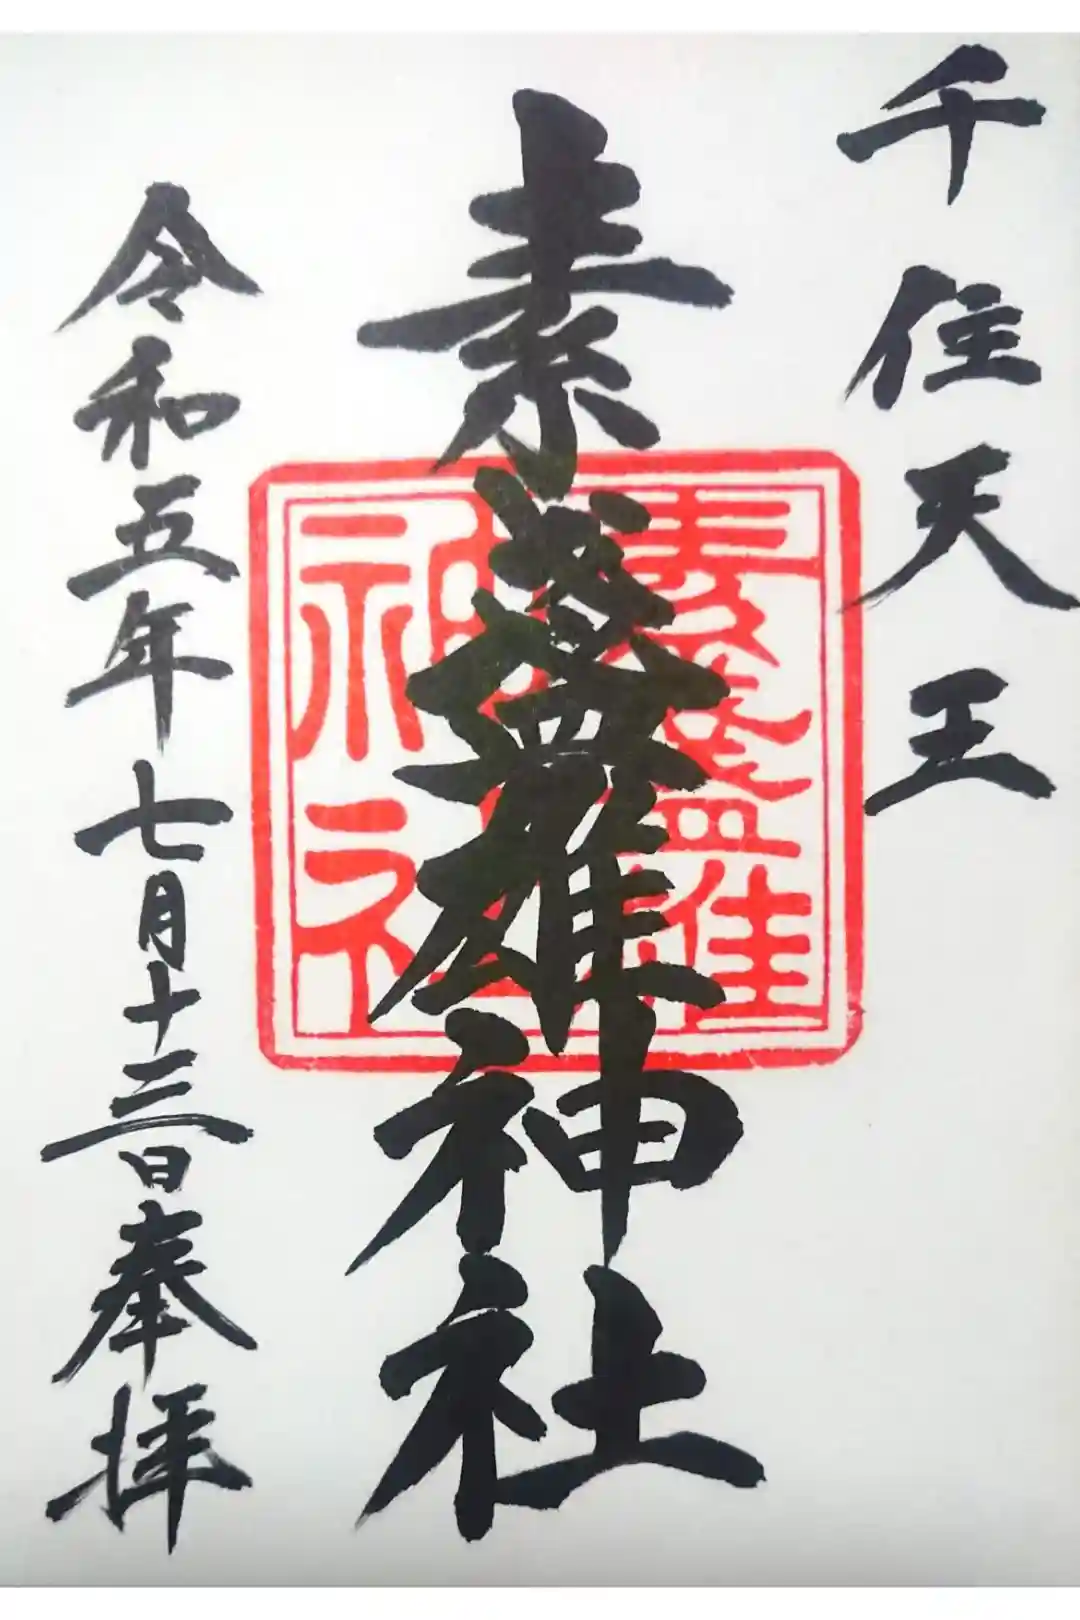 千住天王
素盞雄神社
素盞雄
神社
令和五年七月十三日奉拝